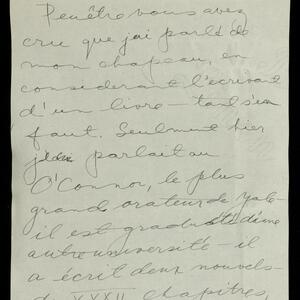 Peutêtre vous avez
cru que j'ai parlé de
mon chapeau, en
considerant l'ecrivant
d'un livre — tant s'en
faut. Seulment hier
parlait au
O'Connor, le plus
grand orateur de Yale
il est graduate d'une
autre université — il
a écrit deux nouvels
XXXII chapitres,